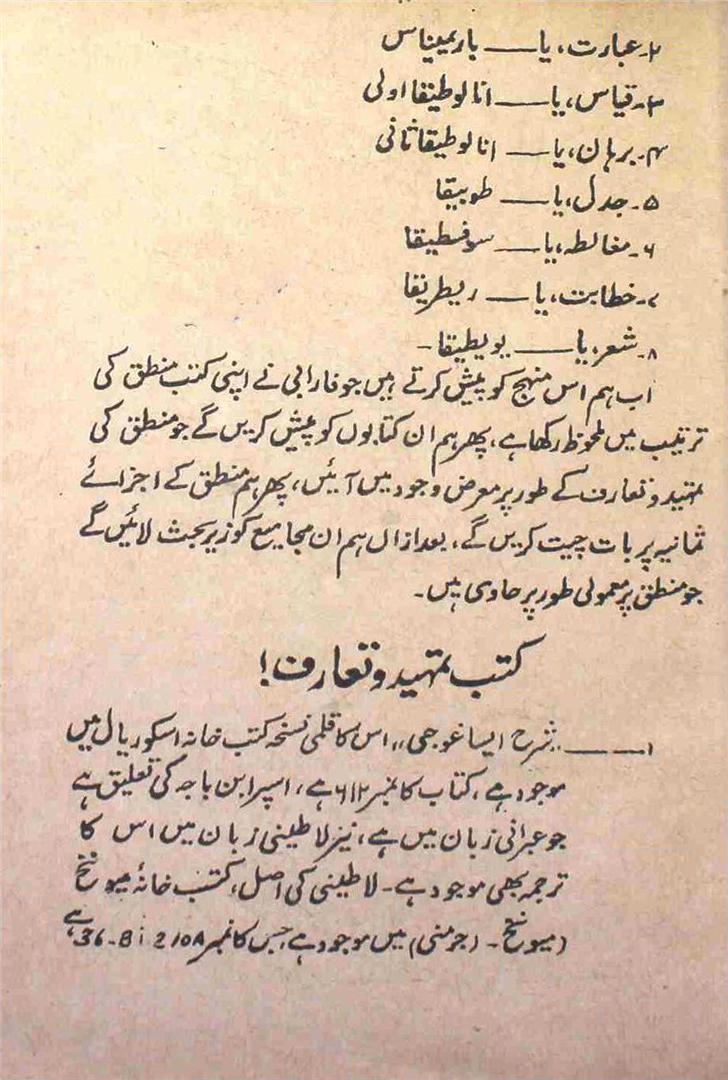 ۲۔عبارت، یا ـــــ باریمیناس
۳۔قیاس، یا ـــــ انالوطیقا اولی
۴۔برہان، یا ـــــ انالوطیقا ثانی
۵۔جدل، یا ـــــ طوبیقا
۶۔مغالطہ، یا ـــــ سوفسطیقا
۷۔خطابت، یا ـــــ ریطریقا
۸۔شعر، یا ـــــ یویطیقا۔
اب ہم اس منہج کو پیش کرتے ہیں جو فارابی نے اپنی کتب منطق کی
ترتیب میں ملحوظ رکھا ہے، پھر ہم ان کتابوں کو پیش کریں گے جو منطق کی
تمہید و تعارف کے طور پر معرض وجود میں آئیں، پھر ہم منطق کے اجزائے
ثمانیہ پر بات چیت کریں گے، بعد ازاں ہم ان مجامیع کو زیر بحث لائیں گے
جو منطق پر معمولی طور پر حاوی ہیں۔
کتب تمہید و تعارف!
۱ـــــ ،،شرح ایساغوجی،، اس کا قلمی نسخہ کتب خانہ اسکوریال میں
موجود ہے، کتاب کا نمبر ۶۱۲ ہے، اسپر ابن باجہ کی تعلیق ہے
جو عبرانی زبان میں ہے، نیز لاطینی زبان میں اس کا
ترجمہ بھی موجود ہے۔ لاطینی کی اصل، کتب خانۂ میونخ
(میونخ۔ (جرمنی) میں موجود ہے، جس کا نمبر 36-Bi 210A ہے